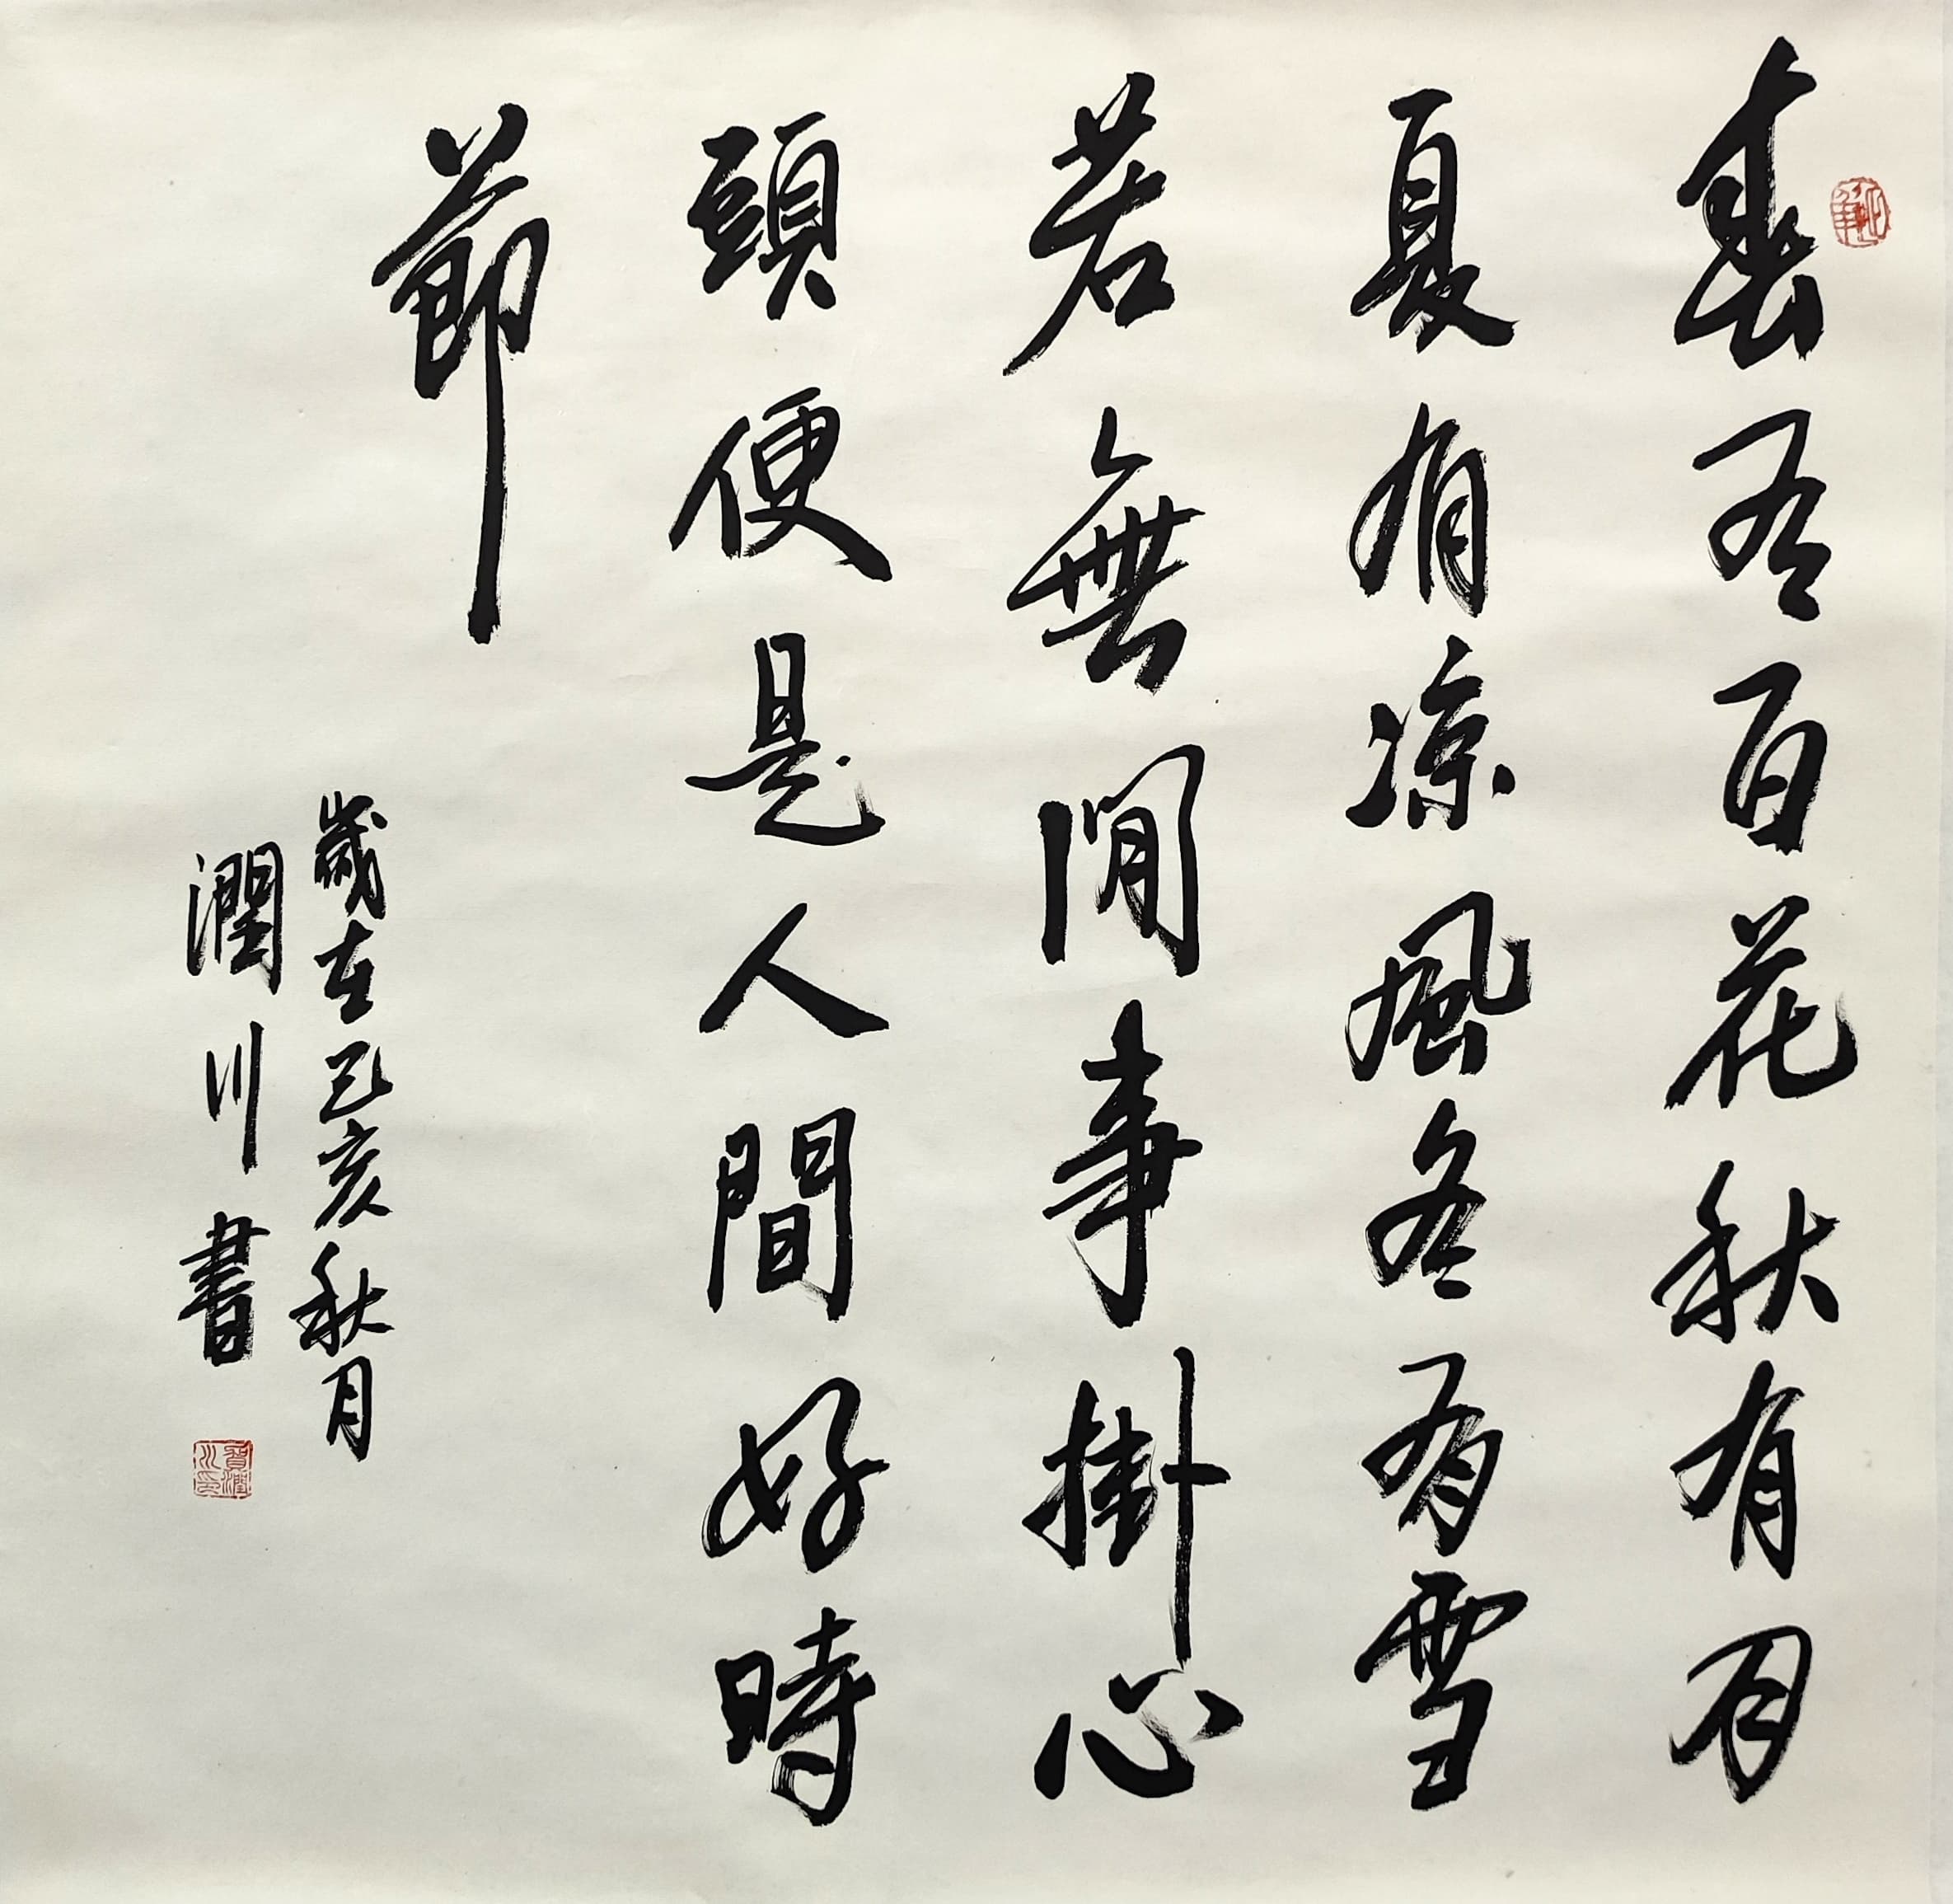 春有百花秋有月
夏有凉風冬有雪
若無閒事掛心
頭便是人間好時
節
歲在己亥秋月
潤川書
賀潤川印